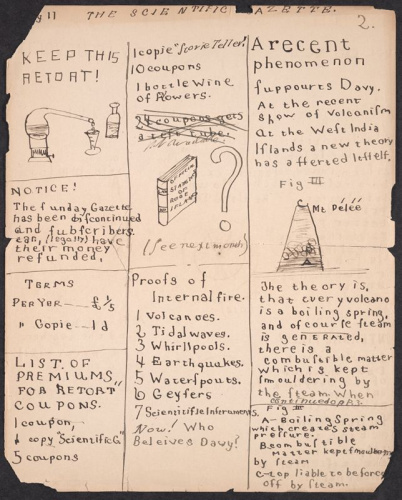 THE SCIENTIFIC AZETTE.
2.
KEEP THIS
RETORT!
NOTICE!
The ſunday Gazette
has been diſcontinued
and ſubſcribers
can, (legally) have
their money
refunded.
TERMS
PER YER £ 1/5
" Copie 1d
LIST OF
PREMIUMS
FOR RETORT"
COUPONS.
1 coupon,
1 copy "Scientific G."
5 coupons
1 copie "Storie Teller!"
10 coupons
1 bottle Wine
of flowers.
24 coupons gets
a test tuber
ISLAND
OF
ROSE
ISLAND
?
(See next month)
Proofs of
Internal fire.
1 Volcanoes.
2 Tidal waves.
3 Whirllpools.
4 Earthquakes.
5 Waterſpouts.
6 Geyſers
7 Scientiſic Inſtruments.
Now! Who
Beleives Davy?
A recent
phenomenon
ſuppourts Davy.
At the recent
ſhow of Volcaniſm
at the Weſt India
Iſlands a new theory
has aſſerted itſelf.
Fig III
C
Mt Péleé
B
A
The theory is,
that every volcano
is a boiling ſpring,
and of courſe ſteam
is generated,
there is a
combuſtible matter
which is kept
ſmouldering by
the ſteam. When
Fig III
A-Boiling Spring
which creates steam
preſſure.
B combuſtible
matter kept ſmouldering
by ſteam
C-top liable to be forced
off by ſteam.